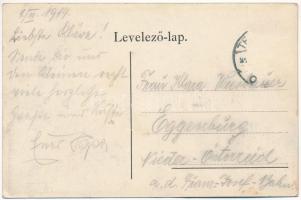 1914.
Liebste Klára!
Sende Dir und
den Deinen recht
viele herzliche
Grüße und Küsse
Levelező-lap.
Frau Klara
Eggenburg
Nieder-Österreich
a. d. Franz-Josef-Bahn